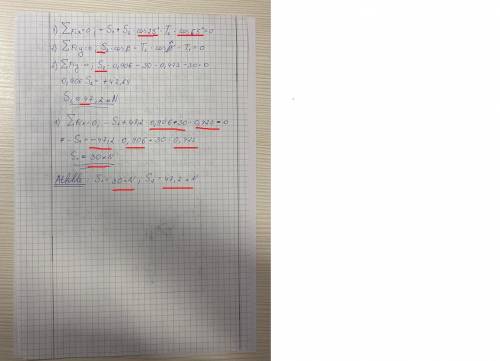 1) ΣFix=0; + S₁ + S₂ · cos25° - T₂ · cos65°=0
2) ΣFiy=0; S₂ · cosβ - T₂ · cosβ - T₁ = 0
2) ΣFiy=0; S₂ · 0,906 - 30 · 0,423 - 30=0
0,906 S₂ = +42,69
S₂ = 47,2 кN
1) ΣFix=0; - S₁ + 47,2 · 0,906 + 30 · 0,423 = 0
= - S₁ = -47,2 · 0,906 + 30 · 0,423
S₁ = 30 кN
S₁ = 30 кN; S₂ = 47,2 кN